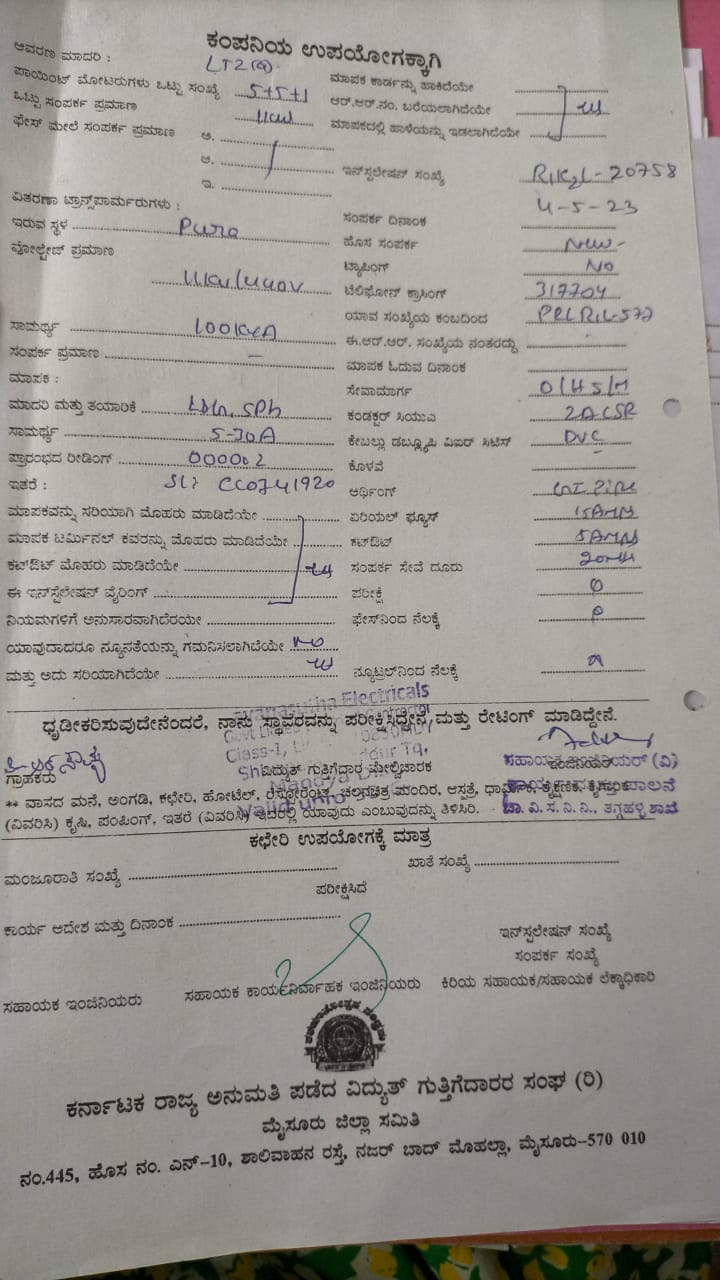 ಕಂಪನಿಯ ಉಪಯೋಗಕ್ಕಾಗಿ
ಆವರಣ ಮಾದರಿ : LT2(a)
ಪಾಯಿಂಟ್ ಮೋಟರುಗಳು ಒಟ್ಟು ಸಂಖ್ಯೆ 5+5+1 ಮಾಪಕ ಕಾರ್ಡನ್ನು ಹಾಕಿದೆಯೇ
ಒಟ್ಟು ಸಂಪರ್ಕ ಪ್ರಮಾಣ ಆರ್.ಆರ್.ನಂ. ಬರೆಯಲಾಗಿದೆಯೇ
ಫೇಸ್ ಮೇಲೆ ಸಂಪರ್ಕ ಪ್ರಮಾಣ ಅ. ಮಾಪಕದಲ್ಲಿ ಹಾಳೆಯನ್ನು ಇಡಲಾಗಿದೆಯೇ
ಆ. ಇನ್‌ಸ್ಟಲೇಷನ್ ಸಂಖ್ಯೆ 20758
ಇ.
ವಿತರಣಾ ಟ್ರಾನ್ಸ್‌ಫಾರ್ಮರುಗಳು : ಸಂಪರ್ಕ ದಿನಾಂಕ 4-5-23
ಇರುವ ಸ್ಥಳ Pura ಹೊಸ ಸಂಪರ್ಕ New-
ವೋಲ್ಟೇಜ್ ಪ್ರಮಾಣ ಟ್ಯಾಪಿಂಗ್ NO
11KV/440V ಟೆಲಿಫೋನ್ ಕ್ರಾಸಿಂಗ್ 317704
ಯಾವ ಸಂಖ್ಯೆಯ ಕಂಬದಿಂದ
ಸಾಮರ್ಥ್ಯ 100KVA ಈ.ಆರ್.ಆರ್. ಸಂಖ್ಯೆಯ ನಂತರದ್ದು
ಸಂಪರ್ಕ ಪ್ರಮಾಣ – ಮಾಪಕ ಓದುವ ದಿನಾಂಕ
ಮಾಪಕ : ಸೇವಾಮಾರ್ಗ O/H S/M
ಮಾದರಿ ಮತ್ತು ತಯಾರಿಕೆ ಕಂಡಕ್ಟರ್ ಸಿಯುಎ 2ACSR
ಸಾಮರ್ಥ್ಯ 5-30A ಕೇಬಲ್ಲು ಡಬ್ಲ್ಯೂಪಿ ವಿಐಆರ್ ಸಿಟಿಸ್
ಪ್ರಾರಂಭದ ರೀಡಿಂಗ್ 000002 ಕೊಳವೆ
ಇತರೆ : CC0741920 ಅರ್ಥಿಂಗ್ GI Pipe
ಮಾಪಕವನ್ನು ಸರಿಯಾಗಿ ಮೊಹರು ಮಾಡಿದೆಯೇ ಏರಿಯಲ್ ಫ್ಯೂಸ್ 15AMP
ಮಾಪಕ ಟರ್ಮಿನಲ್ ಕವರನ್ನು ಮೊಹರು ಮಾಡಿದೆಯೇ ಕಟ್‌ಔಟ್ 5AMP
ಕಟ್‌ಔಟ್ ಮೊಹರು ಮಾಡಿದೆಯೇ ಸಂಪರ್ಕ ಸೇವೆ ದೂರು
ಈ ಇನ್‌ಸ್ಟಲೇಷನ್ ವೈರಿಂಗ್ ಪರೀಕ್ಷೆ
ನಿಯಮಗಳಿಗೆ ಅನುಸಾರವಾಗಿದೆರಯೇ ಫೇಸ್‌ನಿಂದ ನೆಲಕ್ಕೆ
ಯಾವುದಾದರೂ ನ್ಯೂನತೆಯನ್ನು ಗಮನಿಸಲಾಗಿದೆಯೇ No
ಮತ್ತು ಅದು ಸರಿಯಾಗಿದೆಯೇ ನ್ಯೂಟ್ರಲ್‌ನಿಂದ ನೆಲಕ್ಕೆ
Electricals
ಧೃಡೀಕರಿಸುವುದೇನೆಂದರೆ, ನಾನು ಸ್ಥಾವರವನ್ನು ಪರೀಕ್ಷಿಸಿದ್ದೇನೆ ಮತ್ತು ರೇಟಿಂಗ್ ಮಾಡಿದ್ದೇನೆ.
Class-1,
ಗ್ರಾಹಕರು ವಿದ್ಯುತ್ ಗುತ್ತಿಗೆದಾರ ಮೇಲ್ವಿಚಾರಕ
** ವಾಸದ ಮನೆ, ಅಂಗಡಿ, ಕಛೇರಿ, ಹೋಟೆಲ್, ರೆಸ್ಟೋರೆಂಟ್, ಚಲನಚಿತ್ರ ಮಂದಿರ, ಆಸ್ಪತ್ರೆ,
(ವಿವರಿಸಿ) ಕೃಷಿ, ಪಂಪಿಂಗ್, ಇತರೆ (ವಿವರಿಸಿ) ಇವರಲ್ಲಿ ಯಾವುದು ಎಂಬುವುದನ್ನು ತಿಳಿಸಿರಿ.
ಕಛೇರಿ ಉಪಯೋಗಕ್ಕೆ ಮಾತ್ರ
ಮಂಜೂರಾತಿ ಸಂಖ್ಯೆ ಖಾತೆ ಸಂಖ್ಯೆ
ಪರೀಕ್ಷಿಸಿದೆ
ಕಾರ್ಯ ಆದೇಶ ಮತ್ತು ದಿನಾಂಕ ಇನ್‌ಸ್ಟಲೇಷನ್ ಸಂಖ್ಯೆ
ಸಂಪರ್ಕ ಸಂಖ್ಯೆ
ಸಹಾಯಕ ಇಂಜಿನಿಯರು ಸಹಾಯಕ ಕಾರ್ಯನಿರ್ವಾಹಕ ಇಂಜಿನಿಯರು ಕಿರಿಯ ಸಹಾಯಕ/ಸಹಾಯಕ ಲೆಕ್ಕಾಧಿಕಾರಿ
ಕರ್ನಾಟಕ ರಾಜ್ಯ ಅನುಮತಿ ಪಡೆದ ವಿದ್ಯುತ್ ಗುತ್ತಿಗೆದಾರರ ಸಂಘ (ರಿ)
ಮೈಸೂರು ಜಿಲ್ಲಾ ಸಮಿತಿ
ನಂ.445, ಹೊಸ ನಂ. ಎನ್-10, ಶಾಲಿವಾಹನ ರಸ್ತೆ, ನಜರ್ ಬಾದ್ ಮೊಹಲ್ಲಾ, ಮೈಸೂರು-570 010